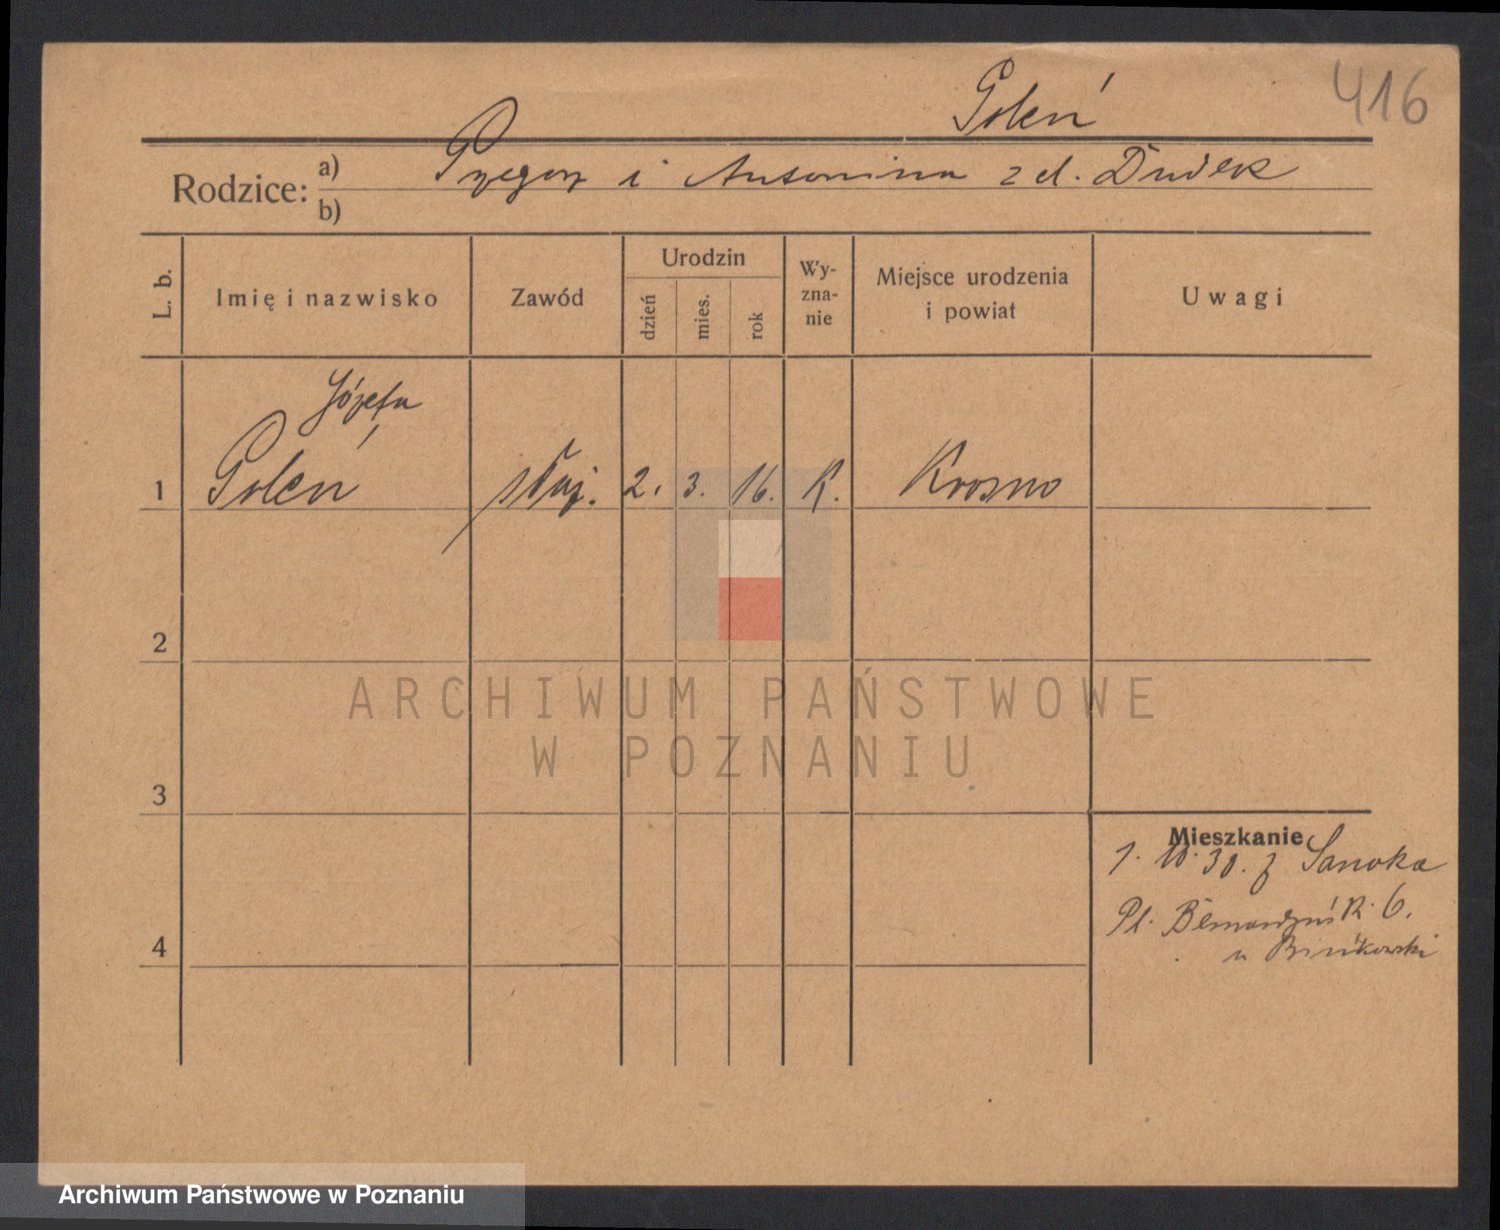 416
Goleń
Rodzice: a) Grzegorz i Antonina z d. Dudek
b)
L. b.
Imię i nazwisko
Zawód
Urodzin
dzień
mies.
rok
Wy-
zna-
nie
Miejsce urodzenia
i powiat
Uwagi
Józefa
1 Goleń służ. 2. 3. 16. K. Krosno
2
3
4
Mieszkanie
30. z Sanoka
Pl. Bernardyńs 6.
u
ARCHIWUM PAŃSTWOWE
W POZNANIU
Archiwum Państwowe w Poznaniu